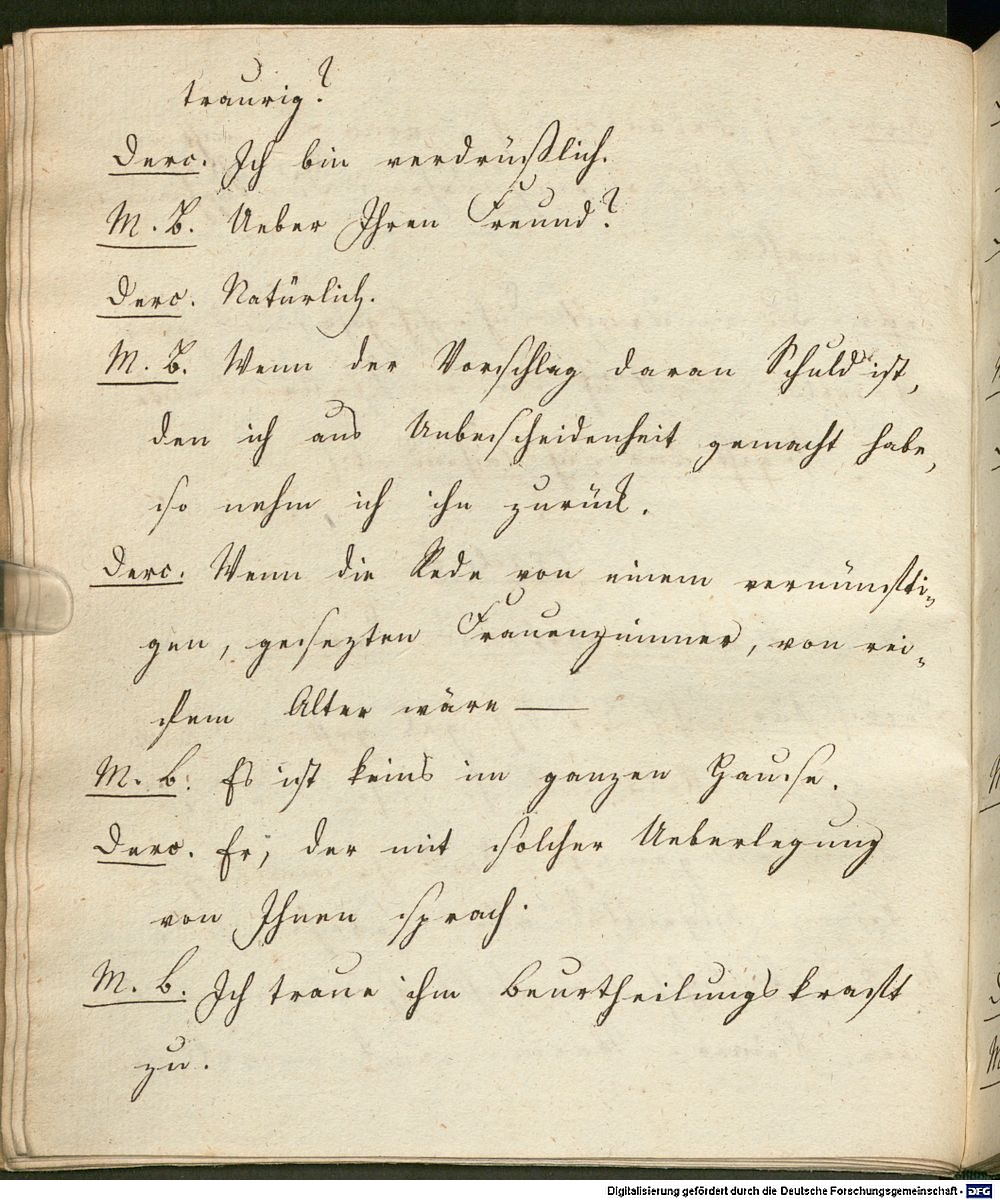 traurig?
Derc. Ich bin verdrüßlich.
M. B. Ueber Ihren Freund?
Derc. Natürlich.
M. B. Wenn der Vorschlag daran Schuld ist,
den ich aus Unbescheidenheit gemacht habe,
so nehm ich ihn zurück.
Derc. Wenn die Rede von einem vernünfti-
gen, gesezten Frauenzimmer, von rei-
fem Alter wäre —
M. B. Es ist keins im ganzen Hause.
Derc. Er, der mit solcher Ueberlegung
von Ihnen sprach.
M. B. Ich traue ihm Beurtheilungskraft
zu.
Digitalisierung gefördert durch die Deutsche Forschungsgemeinschaft - DFG